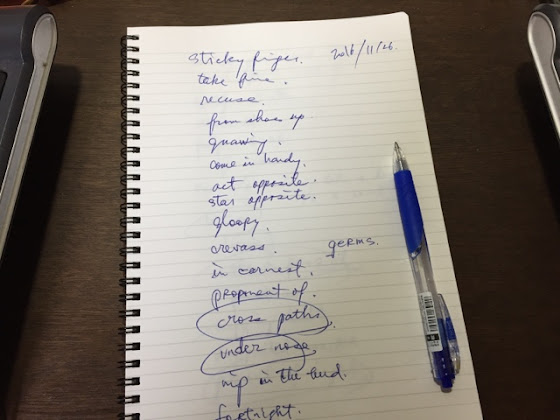 sticky finger. 2016/11/26.
take five.
recuse.
from shoes up.
gnawing.
come in handy.
act opposite.
star opposite.
gloopy.
crevass. germs.
in earnest.
proponent of.
cross paths.
under nose
nip in the bud.
fortnight.